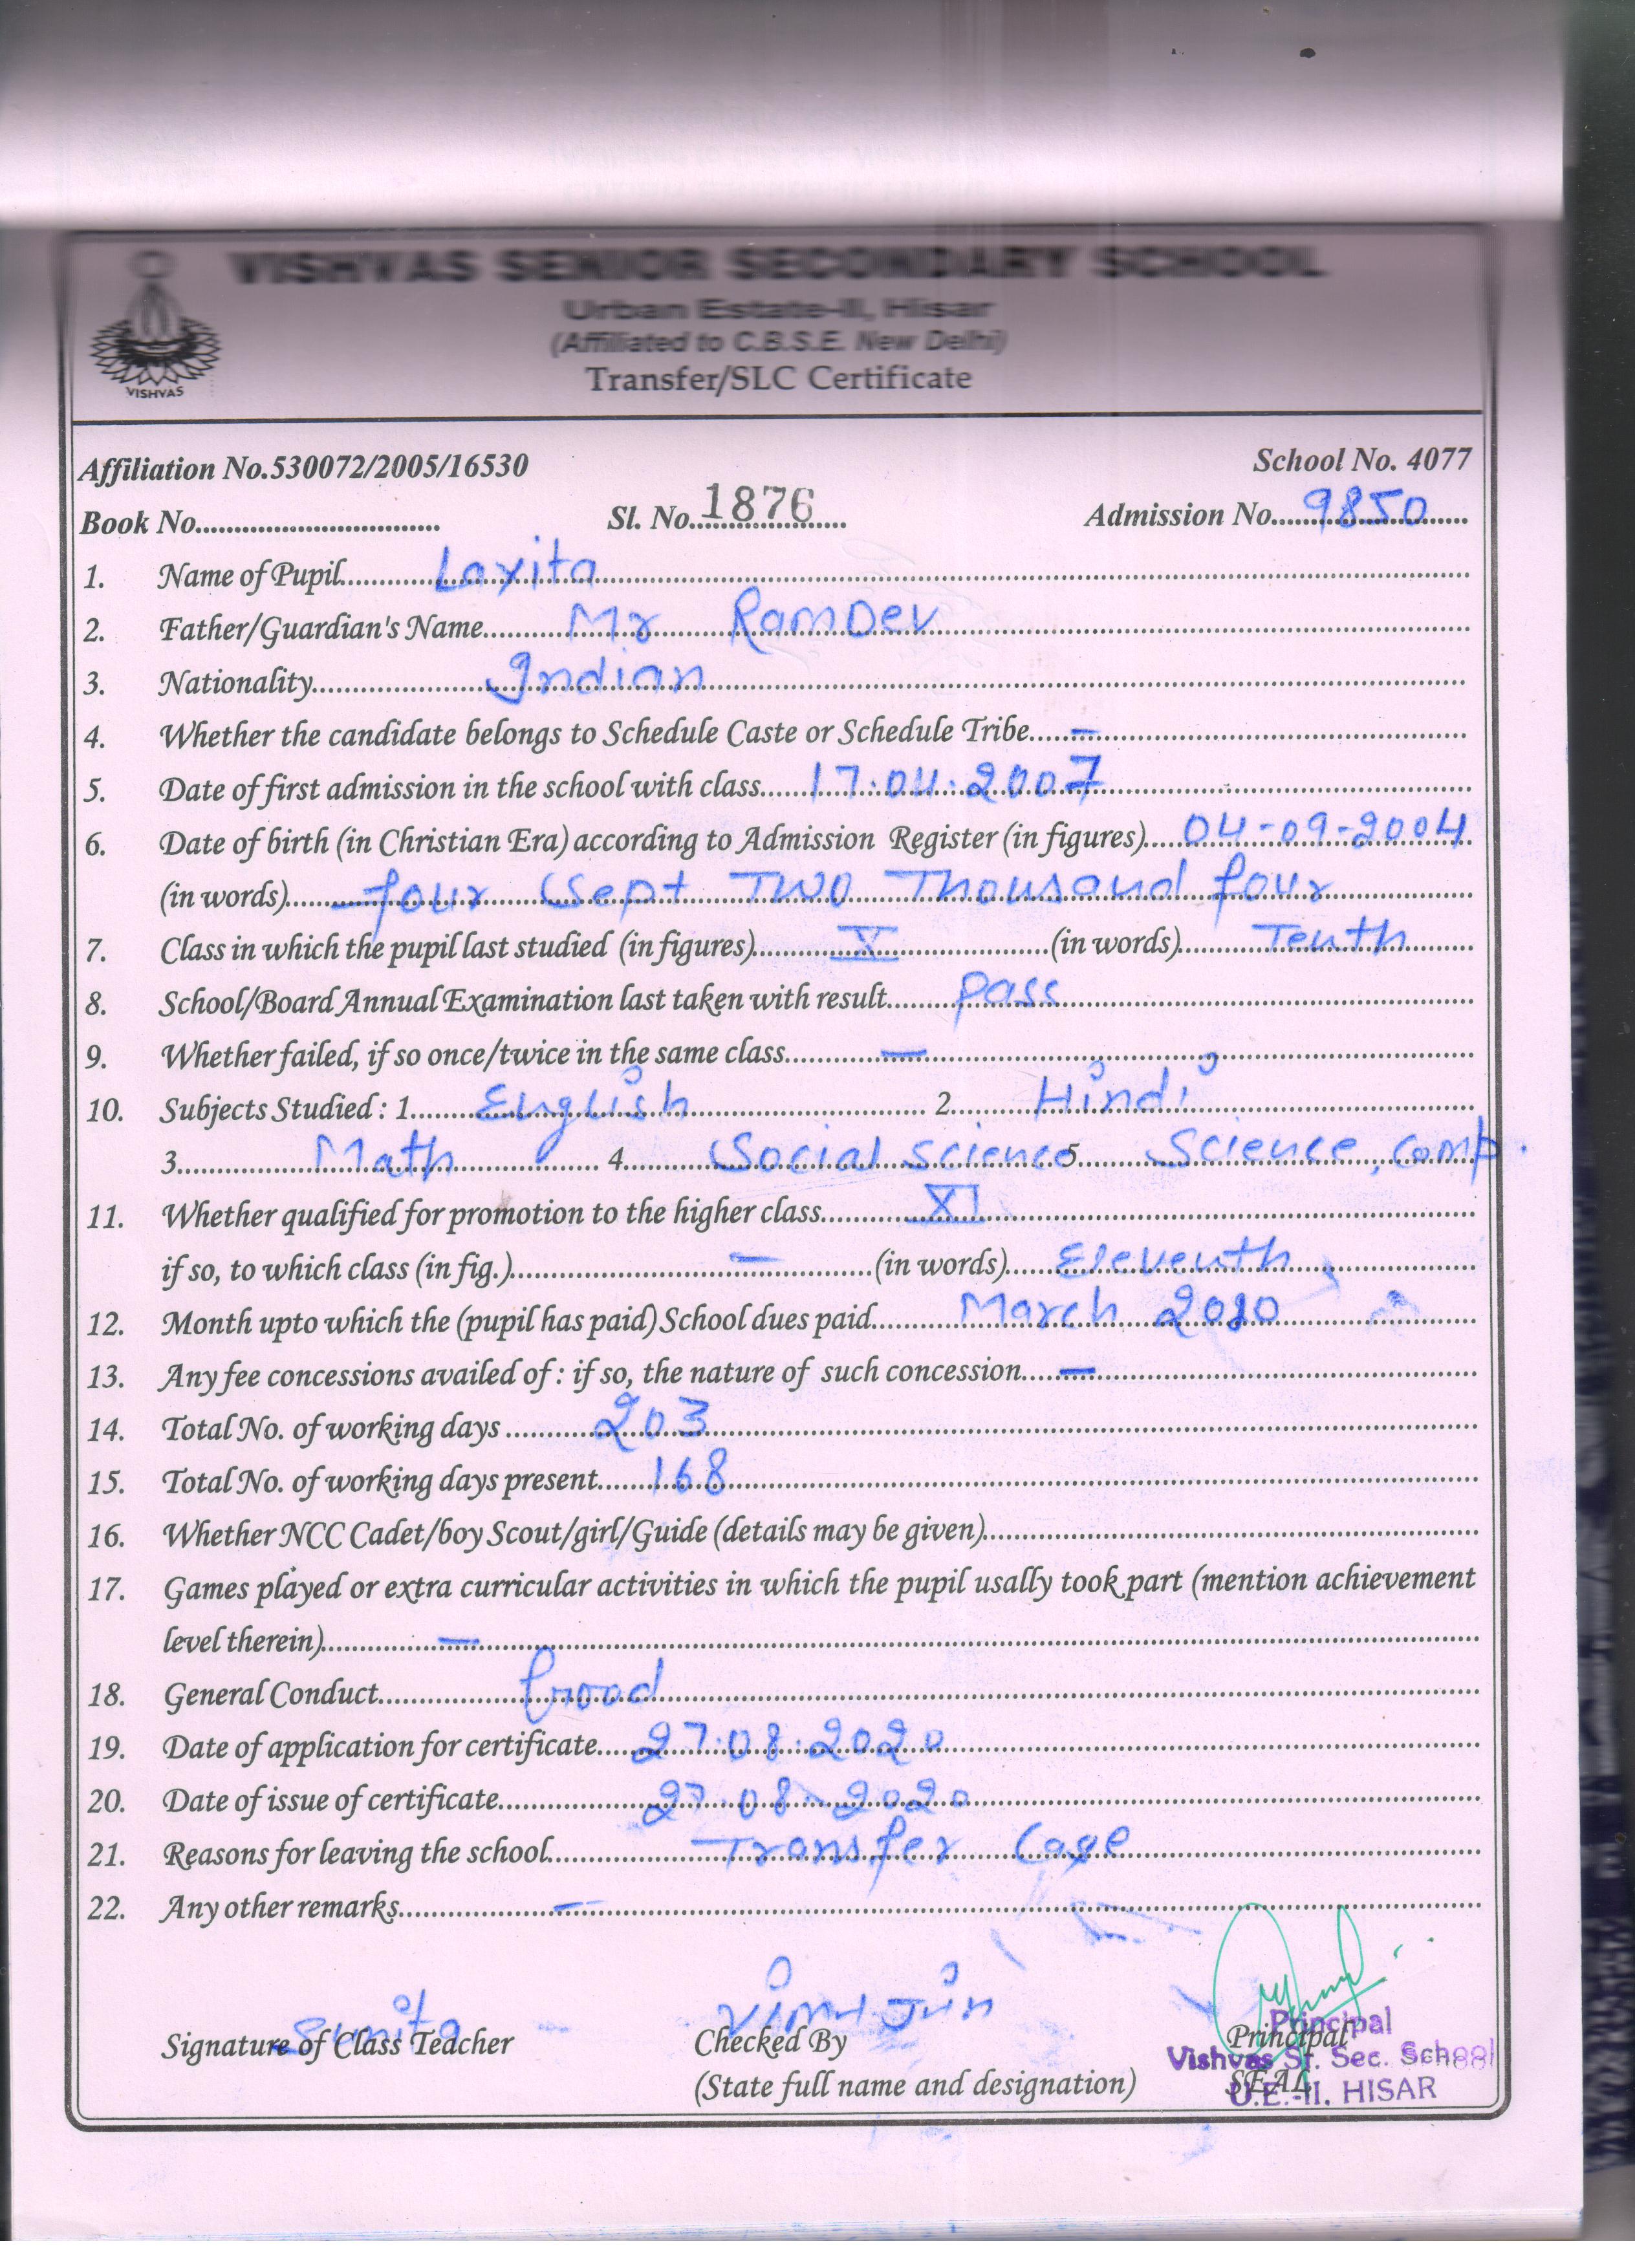 VISHVAS SENIOR SECONDARY SCHOOL
Urban Estate-II, Hisar
(Affiliated to C.B.S.E. New Delhi)
Transfer/SLC Certificate
VISHVAS
Affiliation No.530072/2005/16530 School No. 4077
Book No. Sl. No. 1876 Admission No. 9850
1. Name of Pupil Laxita
2. Father/Guardian's Name Mr RamDev
3. Nationality Indian
4. Whether the candidate belongs to Schedule Caste or Schedule Tribe –
5. Date of first admission in the school with class 17.04.2007
6. Date of birth (in Christian Era) according to Admission Register (in figures) 04-09-2004
(in words) four Sept Two Thousand four
7. Class in which the pupil last studied (in figures) X (in words) Tenth
8. School/Board Annual Examination last taken with result Pass
9. Whether failed, if so once/twice in the same class –
10. Subjects Studied : 1 English 2 Hindi
3 Math 4 Social Science 5 Science, Comp.
11. Whether qualified for promotion to the higher class XI
if so, to which class (in fig.) – (in words) Eleventh
12. Month upto which the (pupil has paid) School dues paid March
13. Any fee concessions availed of : if so, the nature of such concession –
14. Total No. of working days 203
15. Total No. of working days present 168
16. Whether NCC Cadet/boy Scout/girl/Guide (details may be given)
17. Games played or extra curricular activities in which the pupil usally took part (mention achievement
level therein) –
18. General Conduct Good
19. Date of application for certificate 27.08.2020
20. Date of issue of certificate 27.08.2020
21. Reasons for leaving the school Transfer Case
22. Any other remarks –
Sunita
Signature of Class Teacher Checked By Principal
(State full name and designation) SEAL
Principal
Vishvas Sr. Sec. School
U.E.-II, HISAR